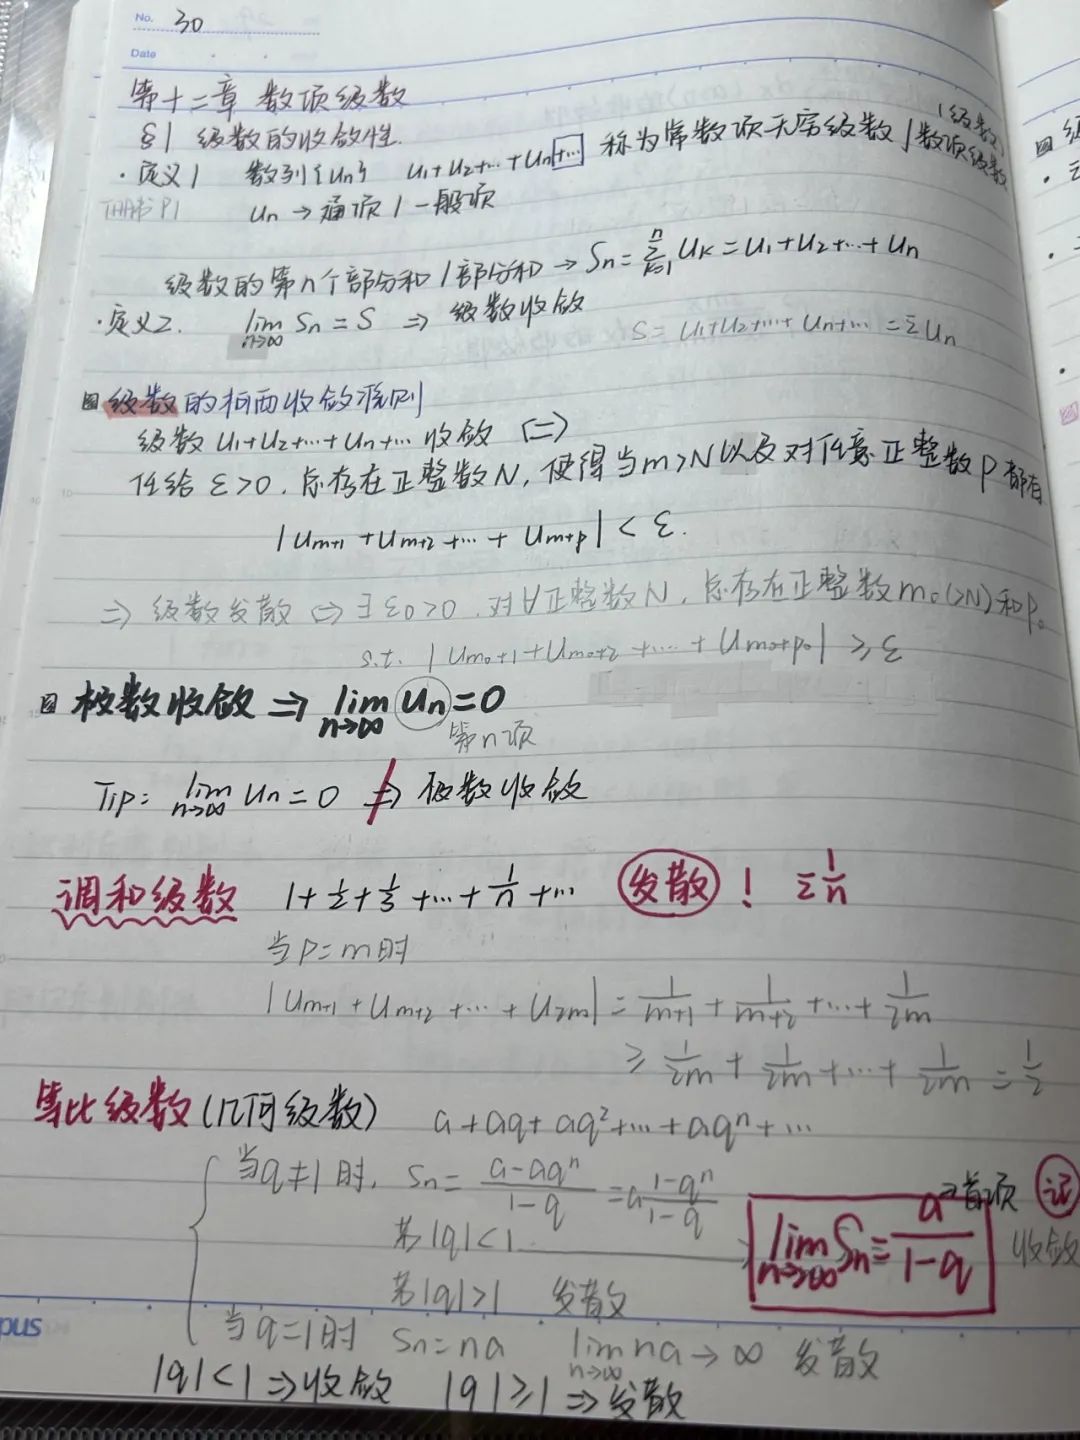 No. 30
Date
第十二章 数项级数
§1 级数的收敛性.
·定义1 数列{un} u1+u2+…+un+… 称为常数项无穷级数/数项级数(级数)
un → 通项/一般项
级数的第n个部分和/部分和 → Sn=∑_{k=1}^{n} uk=u1+u2+…+un
·定义2. lim_{n→∞} Sn=S ⇒ 级数收敛
S=u1+u2+…+un+…=∑un
级数的柯西收敛准则
级数u1+u2+…+un+…收敛 ⇔
任给ε>0, 总存在正整数N, 使得当m>N以及对任意正整数p都有
|um+1+um+2+…+um+p|<ε.
⇒ 级数发散 ⇔ ∃ε0>0, 对∀正整数N, 总存在正整数m0(>N)和p0
s.t. |um0+1+um0+2+…+um0+p0|≥ε
级数收敛 ⇒ lim_{n→∞} un=0
第n项
Tip: lim_{n→∞} un=0 ⇏ 级数收敛
调和级数 1+1/2+1/3+…+1/n+… 发散! ∑1/n
当p=m时
|um+1+um+2+…+u2m|=1/(m+1)+1/(m+2)+…+1/2m
≥1/2m+1/2m+…+1/2m=1/2
等比级数(几何级数) a+aq+aq²+…+aqⁿ+…
当q≠1时, Sn=(a-aqⁿ)/(1-q)=a(1-qⁿ)/(1-q)
若|q|<1 lim_{n→∞} Sn=a/(1-q) →首项 记 收敛
若|q|>1 发散
当q=1时 Sn=na lim_{n→∞} na→∞ 发散
|q|<1⇒收敛 |q|≥1⇒发散